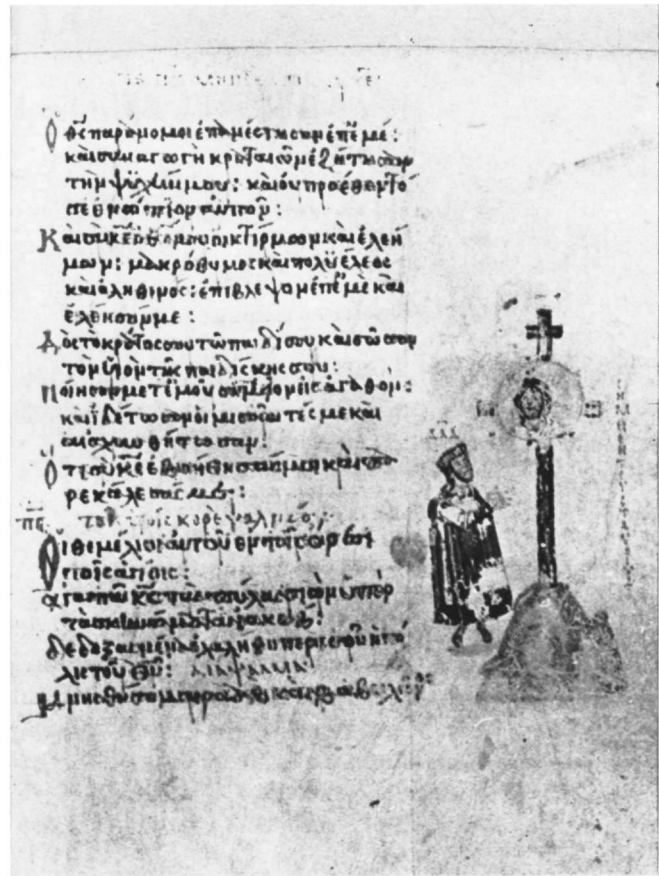 Ὁ θ̅ς̅ παράνομοι ἐπανέστησαν ἐπ' ἐμέ:
καὶ συναγωγὴ κραταιῶν ἐζήτησαν
τὴν ψυχήν μου: καὶ οὐ προέθεντό
σε ἐνώπιον αὐτῶν:
Καὶ σὺ κ̅ε̅ ὁ θ̅ς̅ μου οἰκτίρμων καὶ ἐλεή
μων: μακρόθυμος καὶ πολυέλεος
καὶ ἀληθινός: ἐπίβλεψον ἐπ' ἐμὲ καὶ
ἐλέησόν με:
Δὸς τὸ κράτος σου τῷ παιδί σου καὶ σῶσον
τὸν υἱὸν τῆς παιδίσκης σου:
Ποίησον μετ' ἐμοῦ σημεῖον εἰς ἀγαθόν:
καὶ ἰδέτωσαν οἱ μισοῦντές με καὶ
αἰσχυνθήτωσαν:
Ὅτι σὺ κ̅ε̅ ἐβοήθησάς μοι καὶ πα
ρεκάλεσάς με:
πς τοῖς υἱοῖς κορὲ ψαλμὸς
Οἱ θεμέλιοι αὐτοῦ ἐν τοῖς ὄρεσι
τοῖς ἁγίοις:
ἀγαπᾷ κ̅ς̅ τὰς πύλας σιὼν ὑπὲρ
τὰ σκηνώματα ἰακώβ:
δεδοξασμένα ἐλαλήθη περὶ σοῦ ἡ πό
λις τοῦ θ̅υ̅: διάψαλμα
Μνησθήσομαι ραὰβ καὶ βαβυλῶνος